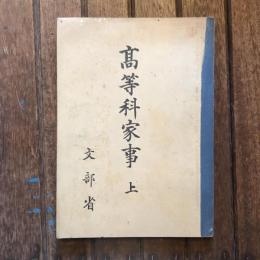 高等科家事 上
文部省